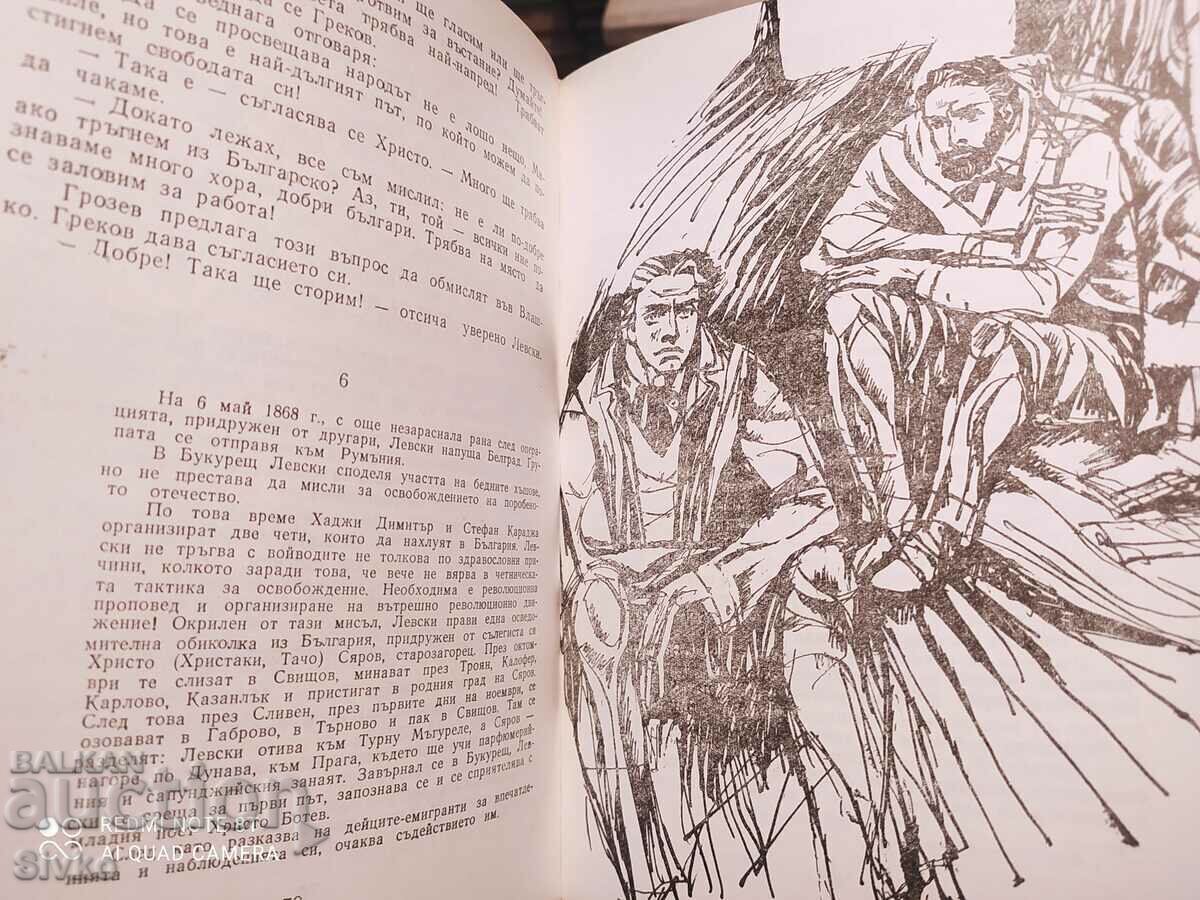 ще гласим или ще
готвим за въстание? Думайте!
се Греков. трябва най-напред! Трябват
веднага отговаря:
да се просвещава народът не е лошо нещо,
но това е най-дългият път, по който можем да по-
стигнем свободата си!
— Така е — съгласява се Христо. — Много ще трябва
да чакаме.
— Докато лежах, все съм мислил: не е ли по-добре
ако тръгнем из Българско? Аз, ти, той — всички ние по-
знаваме много хора, добри българи. Трябва на място да
се заловим за работа!
Грозев предлага този въпрос да обмислят във Влаш-
ко. Греков дава съгласието си.
— Добре! Така ще сторим! — отсича уверено Левски.
6
На 6 май 1868 г., с още незараснала рана след опера-
цията, придружен от другари, Левски напуща Белград. Гру-
пата се отправя към Румъния.
В Букурещ Левски споделя участта на бедните хъшове,
но не престава да мисли за освобождението на поробено-
то отечество.
По това време Хаджи Димитър и Стефан Караджа
организират две чети, които да нахлуят в България. Лев-
ски не тръгва с войводите не толкова по здравословни при-
чини, колкото заради това, че вече не вярва в четническа-
та тактика за освобождение. Необходима е революционна
проповед и организиране на вътрешно революционно дви-
жение! Окрилен от тази мисъл, Левски прави една осведо-
мителна обиколка из България, придружен от сълегиста си
Христо (Христаки, Тачо) Сяров, старозагорец. През октом-
ври те слизат в Свищов, минават през Троян, Калофер,
Карлово, Казанлък и пристигат в родния град на Сяров.
След това през Сливен, през първите дни на ноември, се
озовават в Габрово, в Търново и пак в Свищов. Там се
разделят: Левски отива към Турну Мъгуреле, а Сяров —
нагоре по Дунава, към Прага, където ще учи парфюмерий-
ния и сапунджийския занаят. Завърнал се в Букурещ, Лев-
ски среща за първи път, запознава се и се сприятелява с
младия поет Христо Ботев.
разказва на дейците-емигранти за впечатле-
нията и наблюденията си, очаква съдействието им.
BALKAN
auction
REDMI NOTE 8T
AI QUAD CAMERA
sivko